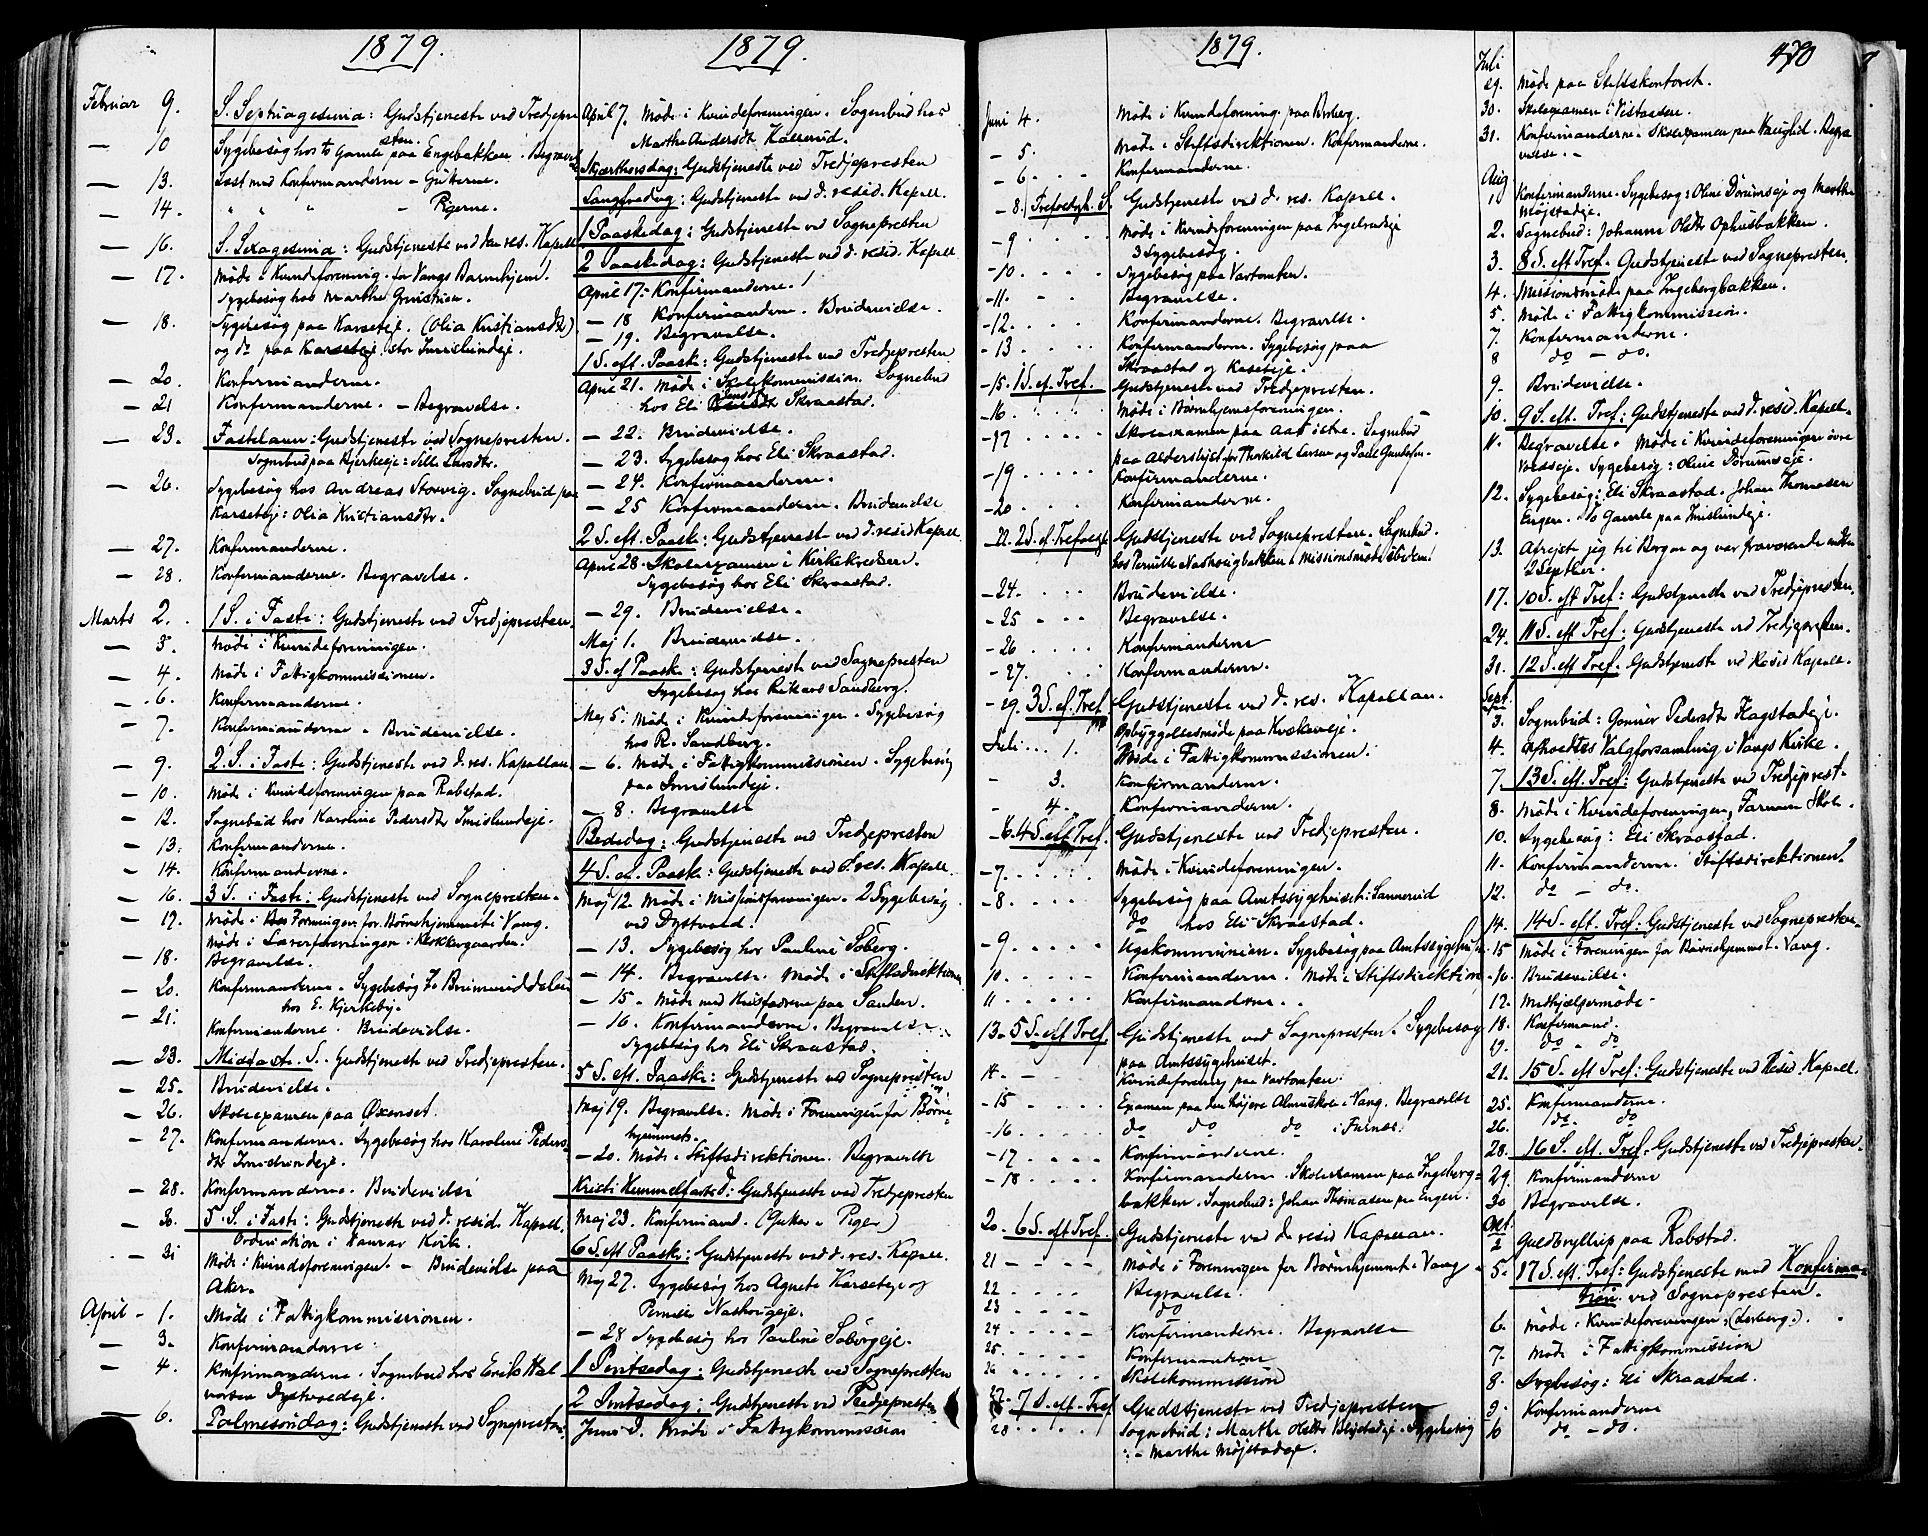 1879.
Februar 9. S. Septuagesima: Gudstjeneste ved Tredjepresten
— 10 Sygebesøg hos to Gamle paa Engebakken. Begravelse
— 13. Læst med Konfirmanderne – Gutterne.
— 14. " " " – Pigerne.
— 16. S. Sexagesima: Gudstjeneste ved den res. Kapell
— 17. Møde i Kvindeforening for Vangs Barnehjem.
Sygebesøg hos Marthe
— 18. Sygebesøg paa Karseteje. (Olia Kristiansdtr)
og do paa Imislundeje.
— 20. Konfirmanderne.
— 21 Konfirmanderne. – Begravelse.
— 23. Fastelavn: Gudstjeneste ved Sognepresten.
Sognebud paa Bjerkeeje:
— 26. Sygebesøg hos Andreas Storvig. Sognebud paa
Karseteje: Olia Kristiansdtr.
— 27. Konfirmanderne.
— 28. Konfirmanderne. Begravelse.
Marts 2. 1 S. i Faste: Gudstjeneste ved Tredjepresten.
— 3. Møde i Kvindeforeningen.
— 4. Møde i Fattigkommissionen.
— 6. Konfirmanderne.
— 7. Konfirmanderne. Brudevielse.
— 9. 2. S. i Faste: Gudstjeneste ved d. res. Kapellan
— 10. Møde i Kvindeforeningen paa Rabstad.
— 12. Sognebud hos Karoline Pedersdtr Imislundeje.
— 13. Konfirmanderne.
— 14. Konfirmanderne.
— 16. 3 S. i Faste: Gudstjeneste ved Sognepresten.
— 17. Møde i Foreningen for Børnehjemmet i Vang.
Møde i Lærerforeningen i
— 18. Begravelse.
— 20. Konfirmanderne. Sygebesøg
hos E. Kjerkeby.
— 21. Konfirmanderne. Brudevielse.
— 23. Midfaste S. Gudstjeneste ved Tredjepresten.
— 25. Brudevielse.
— 26. Skoleexamen paa Øxenset.
— 27. Konfirmanderne. Sygebesøg hos Karoline Peders-
dtr Imislundeje.
— 28. Konfirmanderne. Brudevielse
— 30. 5. S. i Faste: Gudstjeneste ved d. resid. Kapell.
Ordination i Hamar Kirke.
— 31 Møde i Kvindeforeningen. – Brudevielse paa
Aker.
April – 1. Møde i Fattigkommissionen.
— 3. Konfirmanderne.
— 4. Konfirmanderne. Sognebud hos Erik Hal
vorsen Dystvoldeje.
— 6. Palmesøndag: Gudstjeneste ved Sognepresten.
1879.
April 7. Møde i Kvindeforeningen. Sognebud hos
Marthe Andersdt Kolterud.
Skjærthorsdag: Gudstjeneste ved Tredjepresten
Langfredag: Gudstjeneste ved d. resid. Kapell.
1 Paaskedag: Gudstjeneste ved Sognepresten
2 Paaskedag: Gudstjeneste ved d. resid. Kapell
April 17. Konfirmanderne.
— 18 Konfirmanderne. Brudevielse.
— 19. Begravelse.
1 S. eft. Paaske: Gudstjeneste ved Tredjepresten
April 21. Møde i Skolekommission. Sognebud
hos Eli Skraastad.
— 22. Brudevielse.
— 23. Sygebesøg hos Eli Skraastad.
— 24. Konfirmanderne.
— 25 Konfirmanderne. Brudevielse
2 S. eft. Paaske: Gudstjeneste ved d. resid Kapell
April 28. Skoleexamen i Kirkekredsen.
Sygebesøg hos Eli Skraastad.
— 29. Brudevielse.
Maj 1. Brudevielse.
3 S. ef Paaske: Gudstjeneste ved Sognepresten
Sygebesøg hos Rikard Sandberg.
Maj 5. Møde i Kvindeforeningen. Sygebesøg
hos R. Sandberg.
— 6. Møde i Fattigkommissionen. Sygebesøg
paa Imislundeje.
— 8. Begravelse
Bededag: Gudstjeneste ved Tredjepresten
4 S. e. Paaske: Gudstjeneste ved d. res. Kapell.
Maj 12 Møde i Missionsforeningen. 2 Sygebesøg
ved Dystvold.
— 13. Sygebesøg hos Pauline Søberg.
— 14. Begravelse. Møde i Stiftsdirektionen
— 15. Møde med paa Sanden.
— 16. Konfirmanderne. Begravelse
Sygebesøg hos Eli Skraastad.
5 S. eft. Paaske: Gudstjeneste ved Sognepresten
Maj 19. Begravelse. Møde i Foreningen for Børne
hjemmet.
— 20. Møde i Stiftsdirektionen. Begravelse
Kristi Himmelfartsd: Gudstjeneste ved Tredjepresten
Maj 23. Konfirmand. (Gutter – Piger)
6 S. eft Paaske: Gudstjeneste ved d. res. Kapell.
Maj 27. Sygebesøg hos Agnete Karseteje og
Pernille
— 28 Sygebesøg hos Pauline Søbergeje.
1 Pintsedag: Gudstjeneste ved Sognepresten
2 Pintsedag: Gudstjeneste ved Tredjepresten
Juni 3. Møde i Fattigkommission
1879.
Juni 4. Møde i Kvindeforening paa
– 5. Møde i Stiftsdirektionen. Konfirmanderne.
– 6. Konfirmanderne.
– 8. Trefoldigh. S. Gudstjeneste ved d. res. Kapell.
– 9 Møde i Kvindeforeningen paa
3 Sygebesøg.
– 10. Sygebesøg paa Vartomten.
– 11. Begravelse.
– 12. Konfirmanderne. Begravelse.
– 13 Konfirmanderne. Sygebesøg paa
Skraastad og Karseteje.
– 15. 1 S. ef. Tref. Gudstjeneste ved Tredjepresten.
– 16. Møde i Børnehjemsforeningen.
– 17 Skoleexamen paa Sognebud
paa for Thorkild Larsen og
– 19 Konfirmanderne.
– 20 Konfirmanderne.
– 22. 2 S. ef. Trefoldgh Gudstjeneste ved Sognepresten. Sognebud
hos Pernille Missionsmøde
– 24. Brudevielse.
– 25 Begravelse.
– 26 Konfirmanderne
– 27. Konfirmanderne.
– 29. 3 S. ef. Tref. Gudstjeneste ved d. res. Kapellan.
Opbyggelsesmøde paa
Juli 1. Møde i Fattigkommissionen.
– 3. Konfirmanderne.
– 4. Konfirmanderne.
– 6. 4 S. eft Tref. Gudstjeneste ved Tredjepresten.
– 7. Møde i Kvindeforeningen.
– 8 Sygebesøg paa Amtssygehuset:
do hos Eli Skraastad.
– 9 Sygebesøg paa Amtssygehuset
10 Konfirmanderne. Møde i Stiftsdirektion
11 Konfirmanderne.
13. 5 S. eft Tref. Gudstjeneste ved Sognepresten. Sygebesøg
paa Amtssygehuset.
14. Kvindeforening paa Vartomten.
– 15 Examen paa den højere Almueskole i Vang. Begravelse
– 16 do do do i Furnes.
– 17 Konfirmanderne.
– 18 Konfirmanderne. Skoleexamen paa Ingeberg-
bakken. Sognebud: Johan Thomasen paa Engen.
20. 6 S. eft Tref. Gudstjeneste ved d. resid Kapellan.
21 Møde i Foreningen for Børnehjemmet i Vang
22 Begravelse.
23 do
24 Konfirmanderne. Begravelse
25 Konfirmanderne
26 Skolekommission
27. 7 S. eft. Tref Gudstjeneste ved Tredjepresten
28 Sognebud: Marthe Olsdtr Blystadeje. Sygebesøg
: – Marthe Møjstadeje.
470
Juli
29. Møde paa Stiftskontoret.
30. Skoleexamen i
31. Konfirmanderne. Skoleexamen paa Begra
velse. –
Aug
1 Konfirmanderne. Sygebesøg: Oline Dørumseje og Marthe
Møjstadeje.
2. Sognebud: Johanne Olsdtr Ophusbakken.
3. 8 S. eft Tref. Gudstjeneste ved Sognepresten.
4. Missionsmøde paa Ingebergbakken.
5. Møde i Fattigkommission.
7. Konfirmanderne.
8 do – do.
9. Brudevielse.
10. 9 S. eft. Tref. Gudstjeneste ved d. resid. Kapell.
11. Begravelse. Møde i Kvindeforeningen øvre
Sygebesøg: Oline Dørumseje.
12. Sygebesøg: Eli Skraastad. Johan Thomasen
Engen. To Gamle paa Imislundeje.
13. Afrejste jeg til Bergen og var fraværende indtil
2 Septber.
17. 10 S. eft Tref: Gudstjeneste ved Tredjepresten.
24. 11 S. eft Tref: Gudstjeneste ved Tredjepresten.
31. 12 S. eft Tref. Gudstjeneste ved Resid Kapell.
Sept.
3. Sognebud: Gonnor Pedersdt Hagstadeje.
4. Afholdtes Valgforsamling i Vangs Kirke.
7. 13 S. eft. Tref: Gudstjeneste ved Tredjeprest.
8. Møde i Kvindeforeningen, Farmen Skole.
10. Sygebesøg: Eli Skraastad.
11. Konfirmanderne. Stiftsdirektionen
12. do – do.
14. 14 S. eft. Tref. Gudstjeneste ved Sognepresten
15 Møde i Foreningen for Børnehjemmet i Vang.
16. Brudevielse.
17. Medhjælpermøde.
18. Konfirmand.
19. do – do
21. 15 S. eft Tref: Gudstjeneste ved Resid. Kapell.
25. Konfirmanderne.
26. do. do
28. 16 S. eft. Tref. Gudstjeneste ved Tredjepresten.
29. Konfirmanderne
30 Begravelse.
Okt.
2 Guldbryllup paa Rabstad.
5. 17 S. eft. Tref: Gudstjeneste med Konfirma-
tion ved Sognepresten.
6. Møde i Kvindeforeningen,
7. Møde i Fattigkommission
8. Sygebesøg: Eli Skraastad.
9 Konfirmanderne
10 do – do.